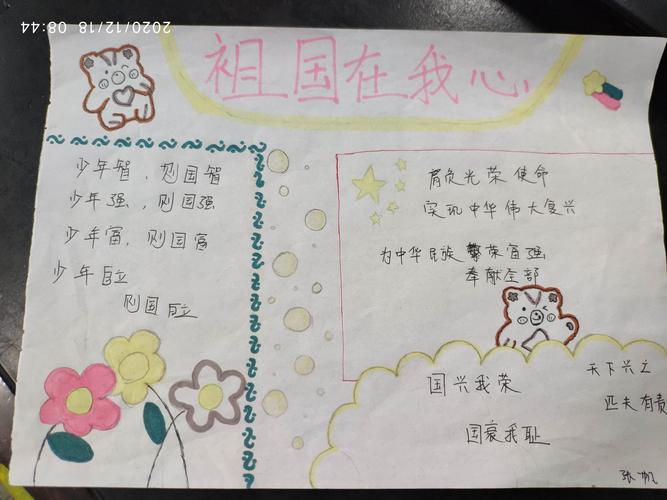 2020/12/18 08:44
祖国在我心
少年智，则国智
少年强，则国强
少年富，则国富
少年自立
则国自立
肩负光荣使命
实现中华伟大复兴
为中华民族繁荣富强
奉献全部
国兴我荣
国衰我耻
天下兴之
匹夫有责
张帆